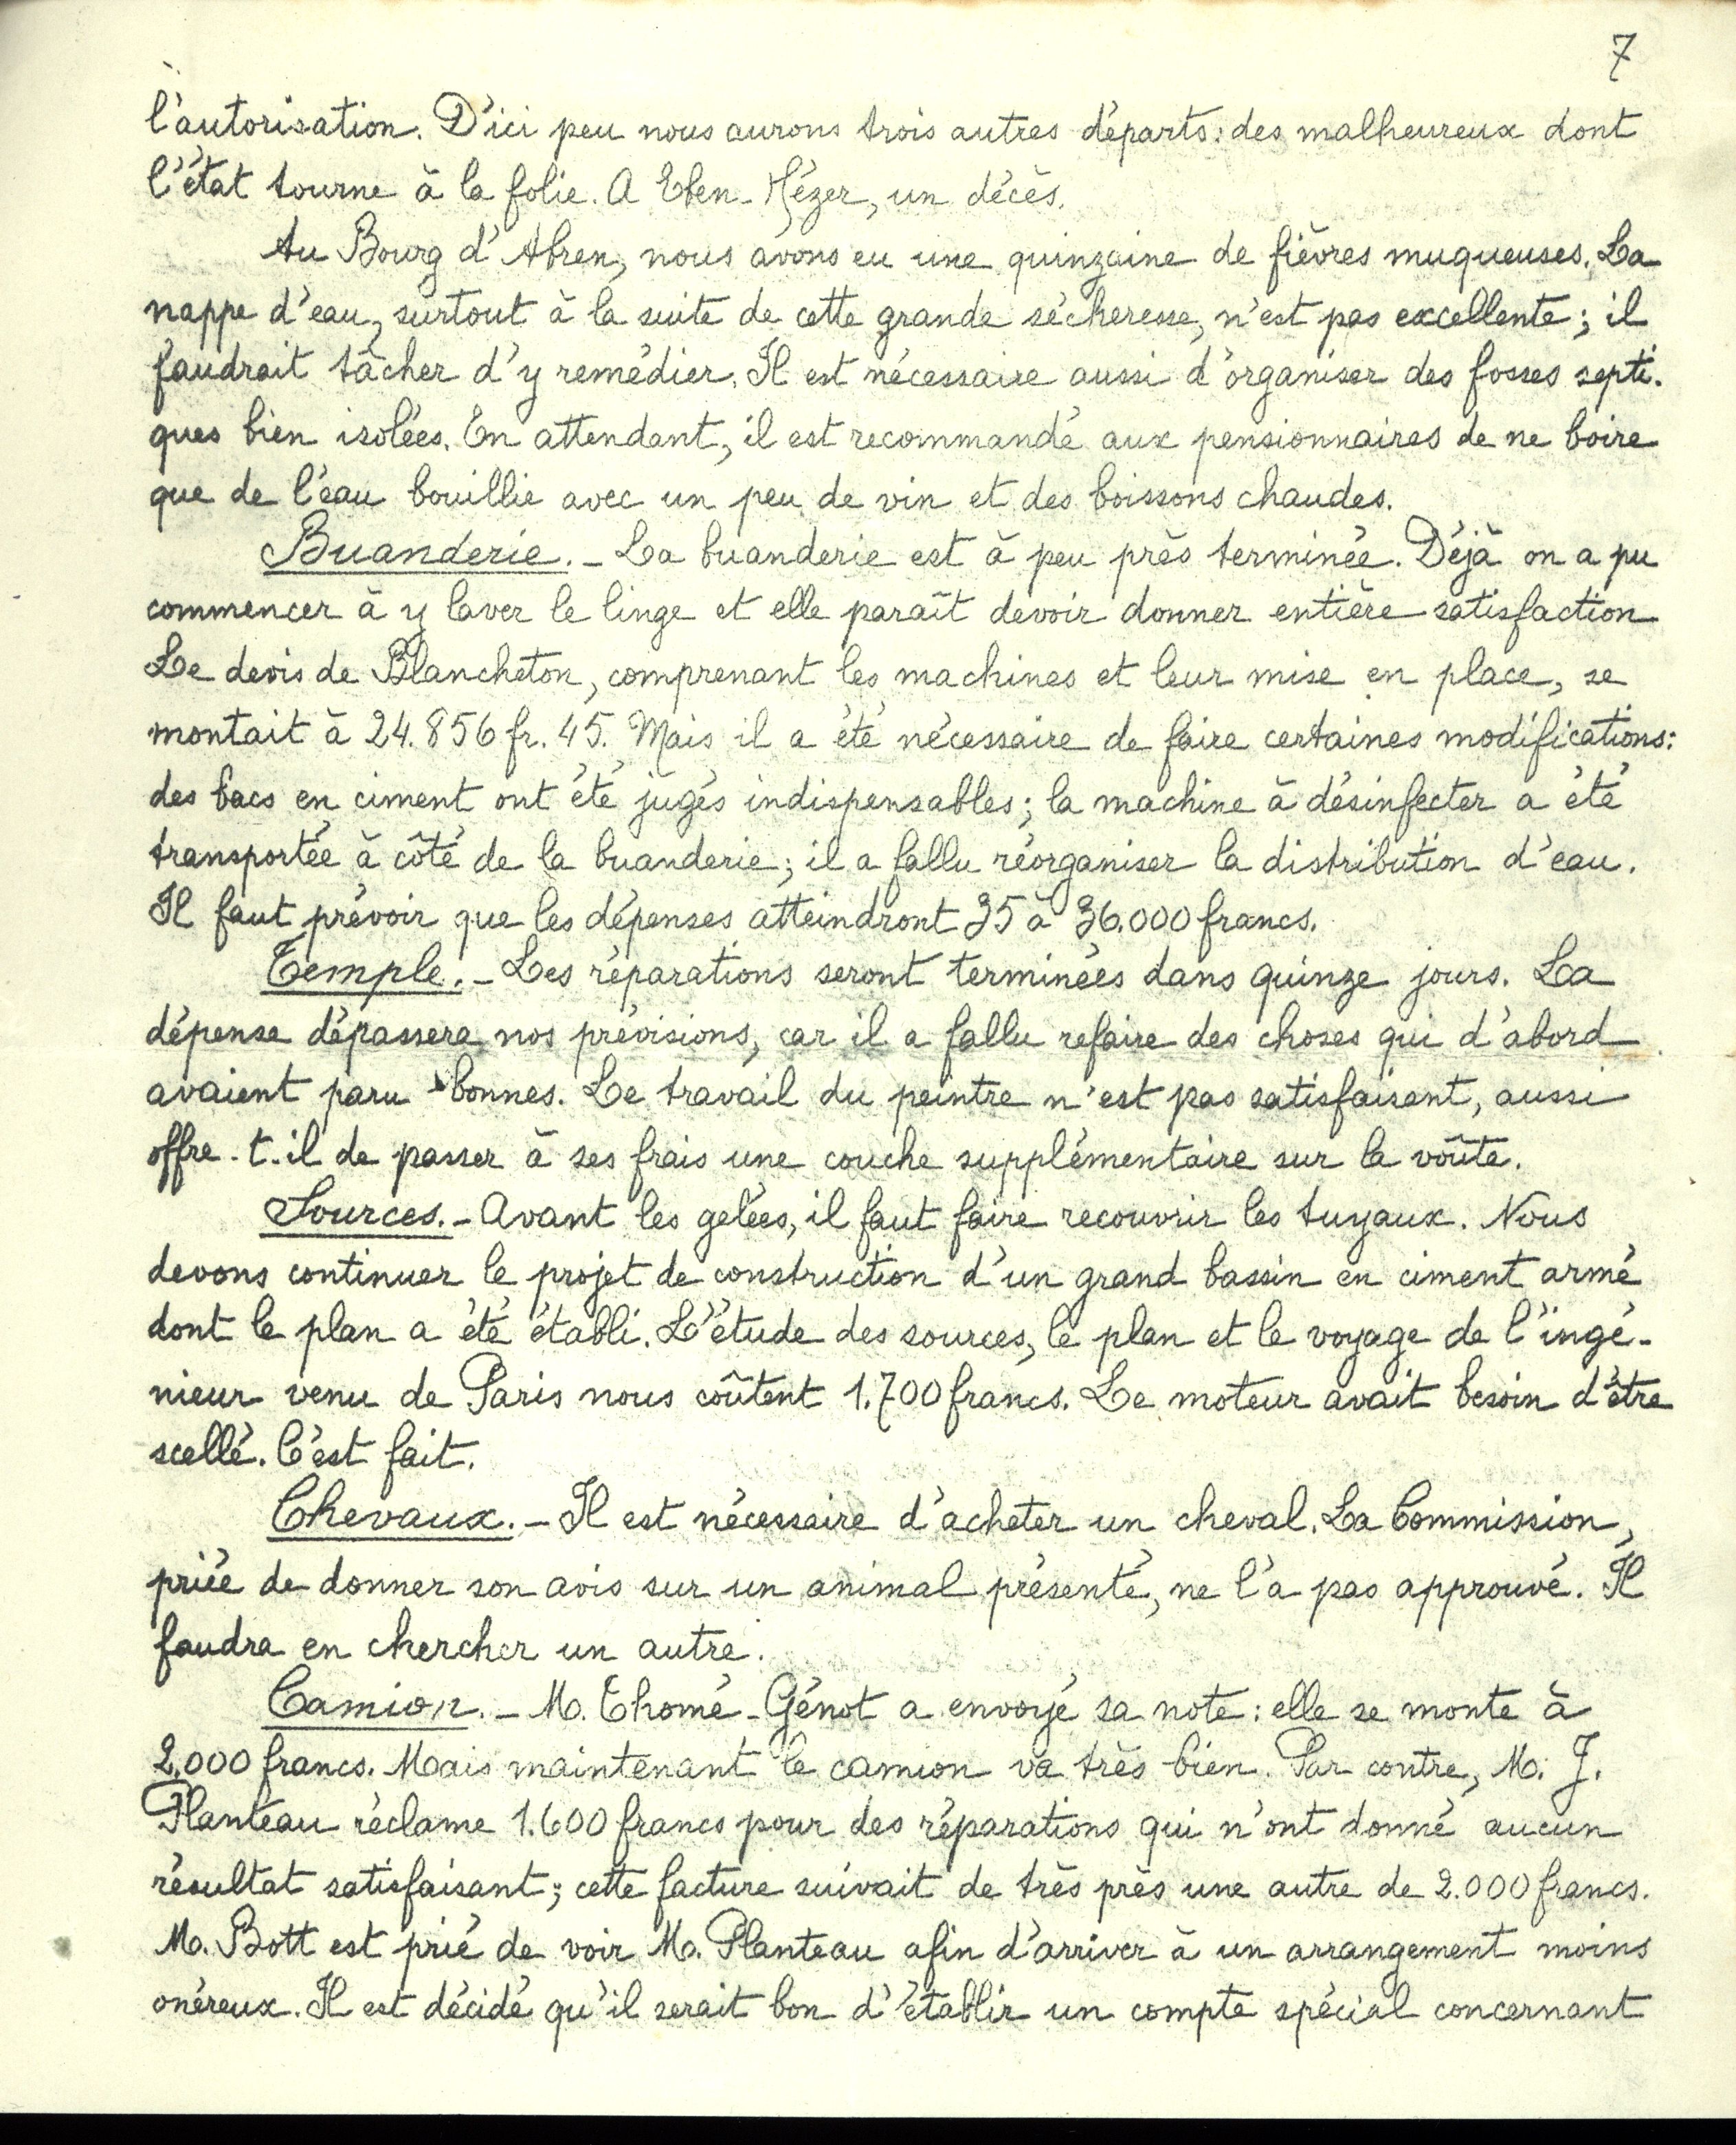 7
l'autorisation. D'ici peu nous aurons trois autres départs: des malheureux dont
l'état tourne à la folie. A Eben-Hézer, un décès.
Au Bourg d'Abren, nous avons eu une quinzaine de fièvres muqueuses. La
nappe d'eau, surtout à la suite de cette grande sécheresse, n'est pas excellente; il
faudrait tâcher d'y remédier. Il est nécessaire aussi d'organiser des fosses septi-
ques bien isolées. En attendant, il est recommandé aux pensionnaires de ne boire
que de l'eau bouillie avec un peu de vin et des boissons chaudes.
Buanderie. - La buanderie est à peu près terminée. Déjà on a pu
commencer à y laver le linge et elle paraît devoir donner entière satisfaction
Le devis de Blancheton, comprenant les machines et leur mise en place, se
montait à 24.856 fr. 45. Mais il a été nécessaire de faire certaines modifications:
des bacs en ciment ont été jugés indispensables; la machine à désinfecter a été
transportée à côté de la buanderie; il a fallu réorganiser la distribution d'eau.
Il faut prévoir que les dépenses atteindront 35 à 36.000 francs.
Temple. - Les réparations seront terminées dans quinze jours. La
dépense dépassera nos prévisions, car il a fallu refaire des choses qui d'abord
avaient paru bonnes. Le travail du peintre n'est pas satisfaisant, aussi
offre-t-il de passer à ses frais une couche supplémentaire sur la voûte.
Sources. - Avant les gelées, il faut faire recouvrir les tuyaux. Nous
devons continuer le projet de construction d'un grand bassin en ciment armé
dont le plan a été établi. L'étude des sources, le plan et le voyage de l'ingé-
nieur venu de Paris nous coûtent 1.700 francs. Le moteur avait besoin d'être
scellé. C'est fait.
Chevaux. - Il est nécessaire d'acheter un cheval. La Commission,
priée de donner son avis sur un animal présenté, ne l'a pas approuvé. Il
faudra en chercher un autre.
Camion. - M. Thomé-Génot a envoyé sa note: elle se monte à
2.000 francs. Mais maintenant le camion va très bien. Par contre, M. J.
Planteau réclame 1.600 francs pour des réparations qui n'ont donné aucun
résultat satisfaisant; cette facture suivait de très près une autre de 2.000 francs.
M. Bott est prié de voir M. Planteau afin d'arriver à un arrangement moins
onéreux. Il est décidé qu'il serait bon d'établir un compte spécial concernant